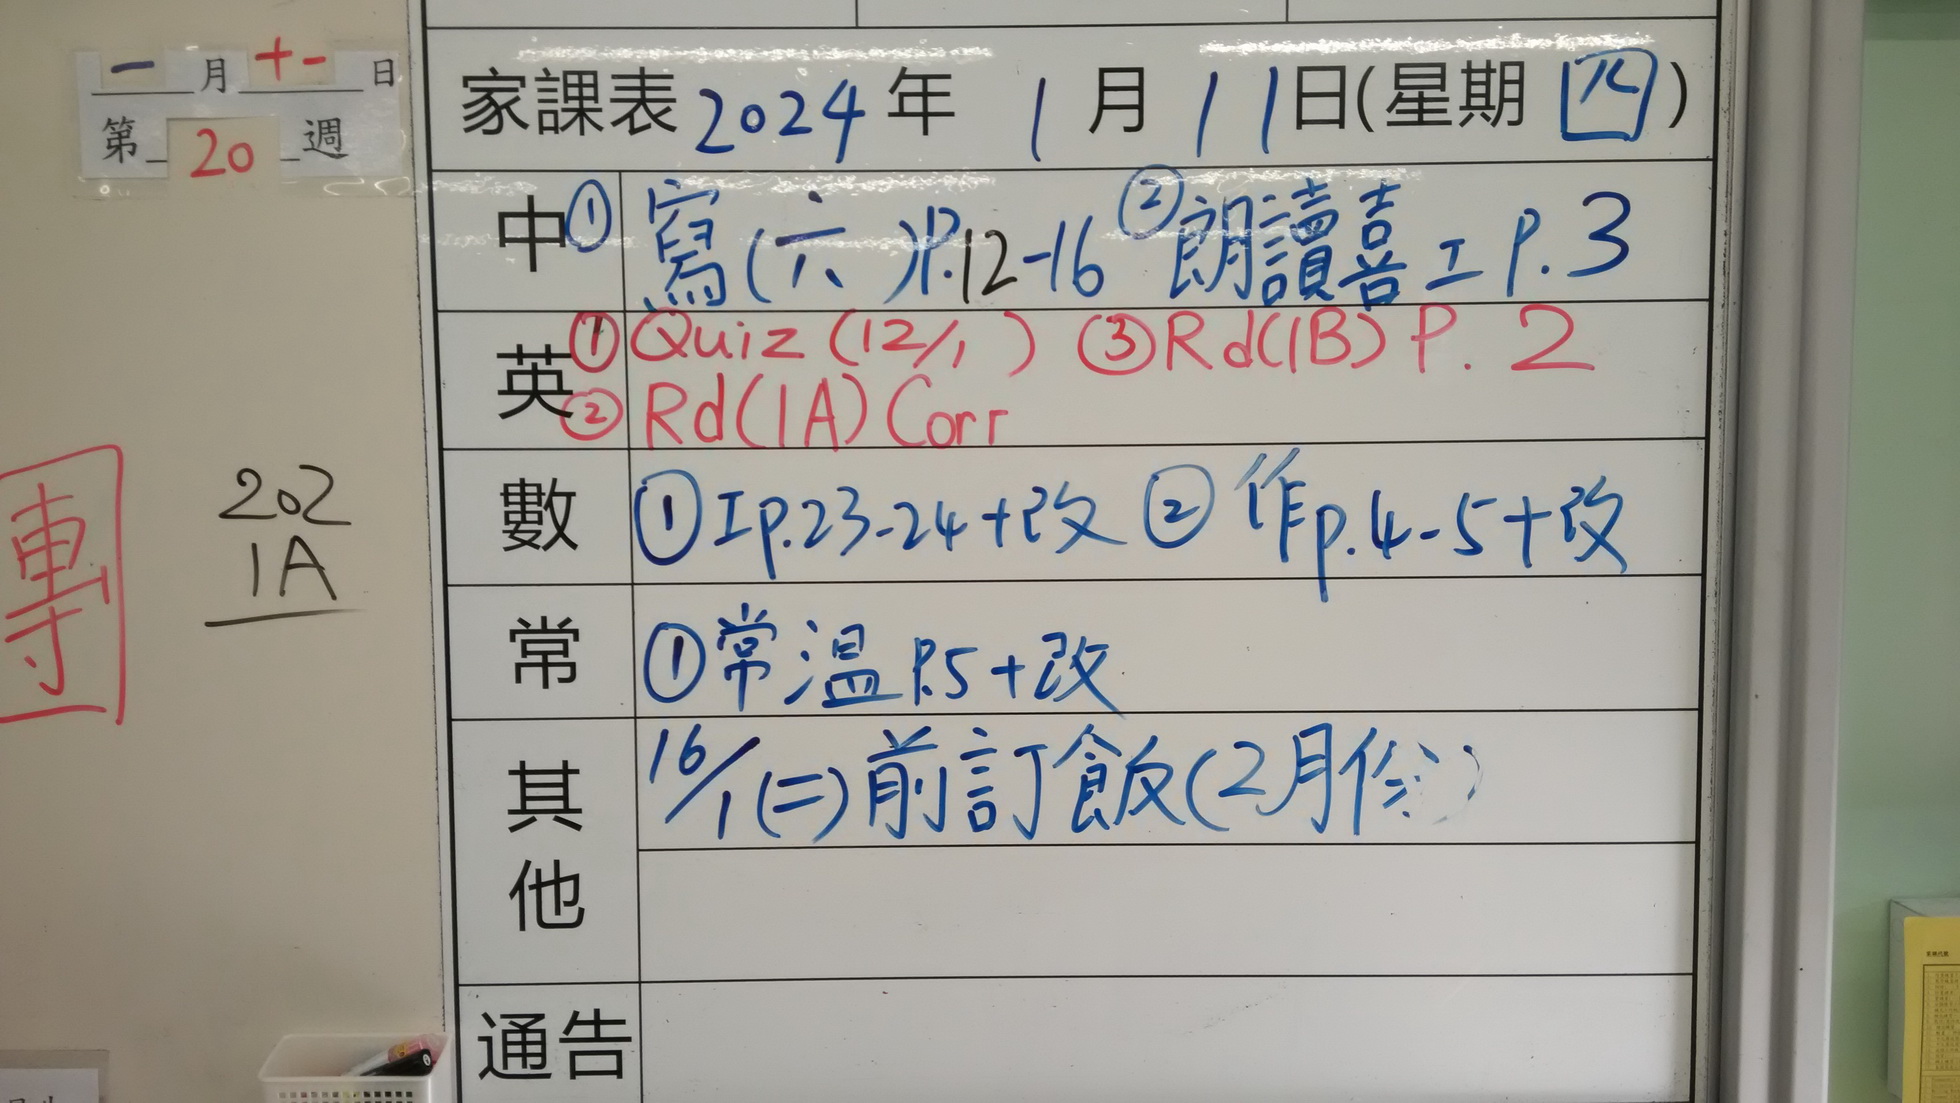 一月十一日
第20週
專
202
1A
家課表 2024年 1月 11日(星期四)
中 ① 寫(六)P.12-16 ② 朗讀喜工 p.3
英 ① Quiz (12/1) ③ Rd(1B) P. 2
② Rd(1A) Corr
數 ① 工p.23-24+改 ② 作p.4-5+改
常 ① 常溫 P.5+改
其他 16/1(二)前訂飯(2月份)
通告